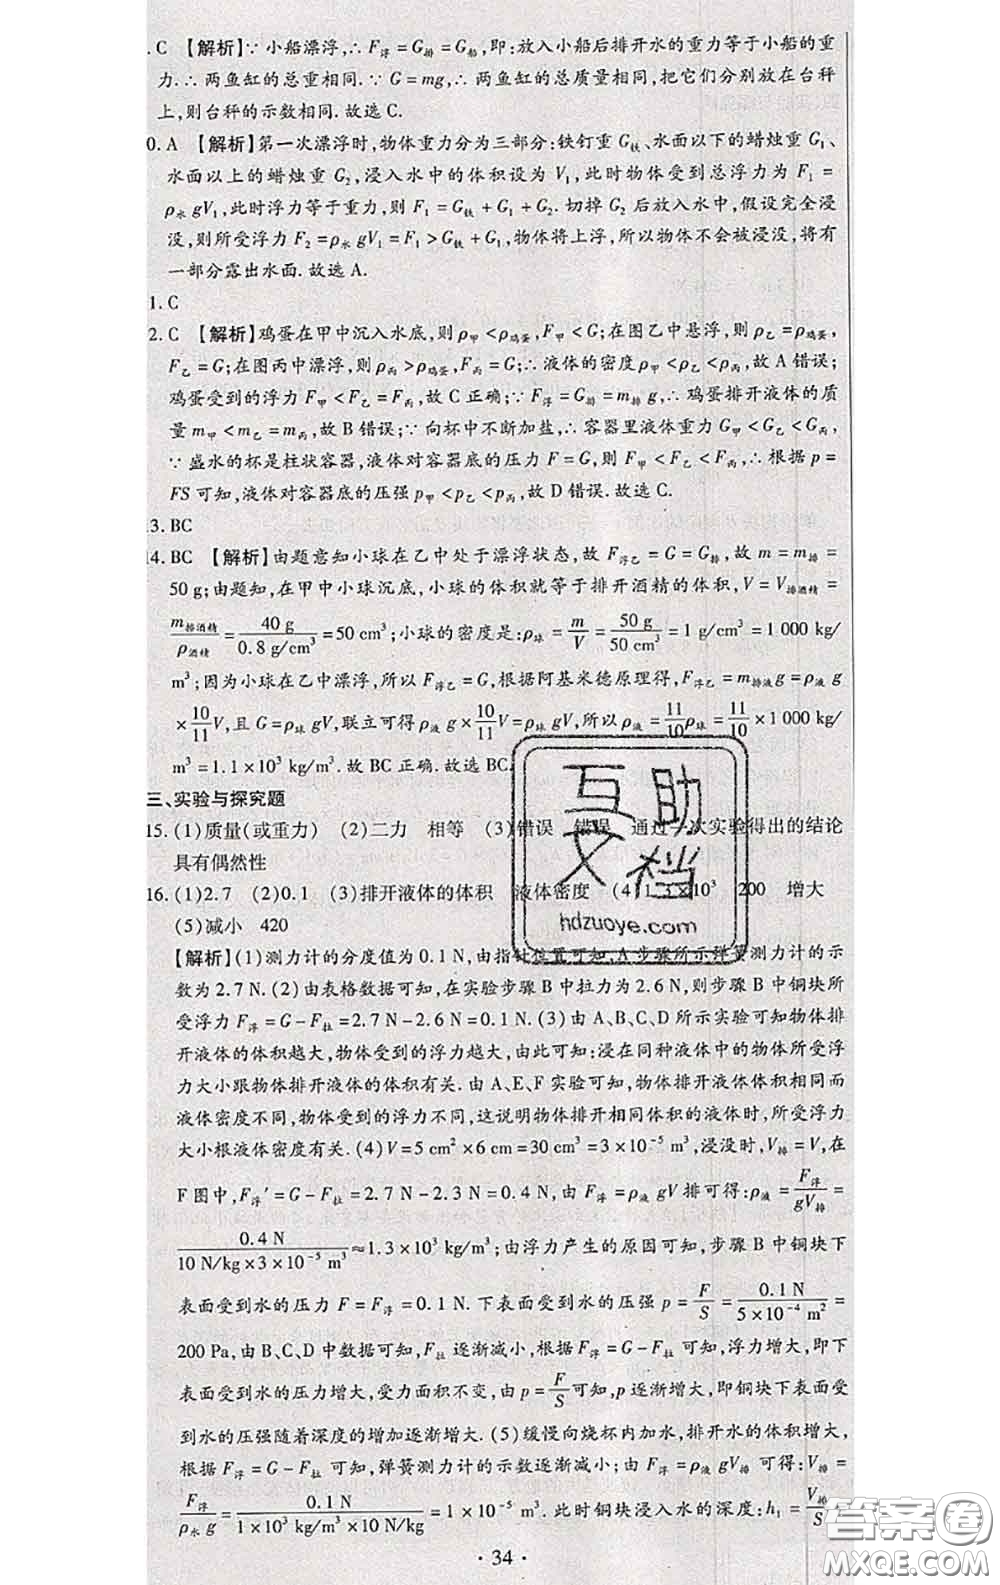 . C 【解析】∵ 小船漂浮,∴ F浮 = G排 = G船,即:放入小船后排开水的重力等于小船的重
力.∴ 两鱼缸的总重相同.∵ G = mg,∴ 两鱼缸的总质量相同,把它们分别放在台秤
上,则台秤的示数相同.故选 C.
0. A 【解析】第一次漂浮时,物体重力分为三部分:铁钉重 G铁、水面以下的蜡烛重 G1、
水面以上的蜡烛重 G2,浸入水中的体积设为 V1,此时物体受到总浮力为 F1 =
ρ水 gV1,此时浮力等于重力,则 F1 = G铁 + G1 + G2. 切掉 G2 后放入水中,假设完全浸
没,则所受浮力 F2 = ρ水 gV1 = F1 > G铁 + G1,物体将上浮,所以物体不会被浸没,将有
一部分露出水面.故选 A.
1. C
2. C 【解析】鸡蛋在甲中沉入水底,则 ρ甲 < ρ鸡蛋,F甲 < G;在图乙中悬浮,则 ρ乙 = ρ鸡蛋,
F乙 = G;在图丙中漂浮,则 ρ丙 > ρ鸡蛋,F丙 = G;∴ 液体的密度 ρ甲 < ρ乙 < ρ丙,故 A 错误;
鸡蛋受到的浮力 F甲 < F乙 = F丙,故 C 正确;∵ F浮 = G排 = m排 g,∴ 鸡蛋排开液体的质
量 m甲 < m乙 = m丙,故 B 错误;∵ 向杯中不断加盐,∴ 容器里液体重力 G甲 < G乙 < G丙,
∵ 盛水的杯是柱状容器,液体对容器底的压力 F = G,则 F甲 < F乙 < F丙,∴ 根据 p =
FS 可知,液体对容器底的压强 p甲 < p乙 < p丙,故 D 错误.故选 C.
13. BC
14. BC 【解析】由题意知小球在乙中处于漂浮状态,故 F浮乙 = G = G排,故 m = m排 =
50 g;由题知,在甲中小球沉底,小球的体积就等于排开酒精的体积,V = V排酒精 =
m排酒精/ρ酒精 = 40 g/0.8 g/cm³ = 50 cm³;小球的密度是:ρ球 = m/V = 50 g/50 cm³ = 1 g/cm³ = 1 000 kg/
m³;因为小球在乙中漂浮,所以 F浮乙 = G,根据阿基米德原理得,F浮乙 = m排液 g = ρ液 g
× 10/11 V,且 G = ρ球 gV,联立可得 ρ液 g × 10/11 V = ρ球 gV,所以 ρ液 = 11/10 ρ球 = 11/10 × 1 000 kg/
m³ = 1.1 × 10³ kg/m³.故 BC 正确.故选 BC.
三、实验与探究题
15. (1)质量(或重力) (2)二力 相等 (3)错误 错误 通过一次实验得出的结论
具有偶然性
16. (1)2.7 (2)0.1 (3)排开液体的体积 液体密度 (4)1.3×10³ 200 增大
(5)减小 420
【解析】(1)测力计的分度值为 0.1 N,由指针位置可知,A 步骤所示弹簧测力计的示
数为 2.7 N.(2)由表格数据可知,在实验步骤 B 中拉力为 2.6 N,则步骤 B 中铜块所
受浮力 F浮 = G - F拉 = 2.7 N - 2.6 N = 0.1 N.(3)由 A、B、C、D 所示实验可知物体排
开液体的体积越大,物体受到的浮力越大,由此可知:浸在同种液体中的物体所受浮
力大小跟物体排开液体的体积有关.由 A、E、F 实验可知,物体排开液体体积相同而
液体密度不同,物体受到的浮力不同,这说明物体排开相同体积的液体时,所受浮力
大小根液体密度有关.(4)V = 5 cm² × 6 cm = 30 cm³ = 3 × 10⁻⁵ m³,浸没时,V排 = V,在
F 图中,F浮′ = G - F拉 = 2.7 N - 2.3 N = 0.4 N,由 F浮 = ρ液 gV 排可得:ρ液 = F浮/gV排 =
0.4 N/10 N/kg × 3 × 10⁻⁵ m³ ≈ 1.3 × 10³ kg/m³;由浮力产生的原因可知,步骤 B 中铜块下
表面受到水的压力 F = F浮 = 0.1 N. 下表面受到水的压强 p = F/S = 0.1 N/5 × 10⁻⁴ m² =
200 Pa,由 B、C、D 中数据可知,F拉 逐渐减小,根据 F浮 = G - F拉 可知,浮力增大,即下
表面受到水的压力增大,受力面积不变,由 p = F/S 可知,p 逐渐增大,即铜块下表面受
到水的压强随着深度的增加逐渐增大.(5)缓慢向烧杯内加水,排开水的体积增大,
根据 F浮 = G - F拉 可知,弹簧测力计的示数逐渐减小;由 F浮 = ρ液 gV排 可得:V排 =
F浮/ρ水 g = 0.1 N/1 × 10³ kg/m³ × 10 N/kg = 1 × 10⁻⁵ m³. 此时铜块浸入水的深度:h1 = V排/S
· 34 ·
互助
文档
hdzuoye.com
答案卷
MXQE.COM